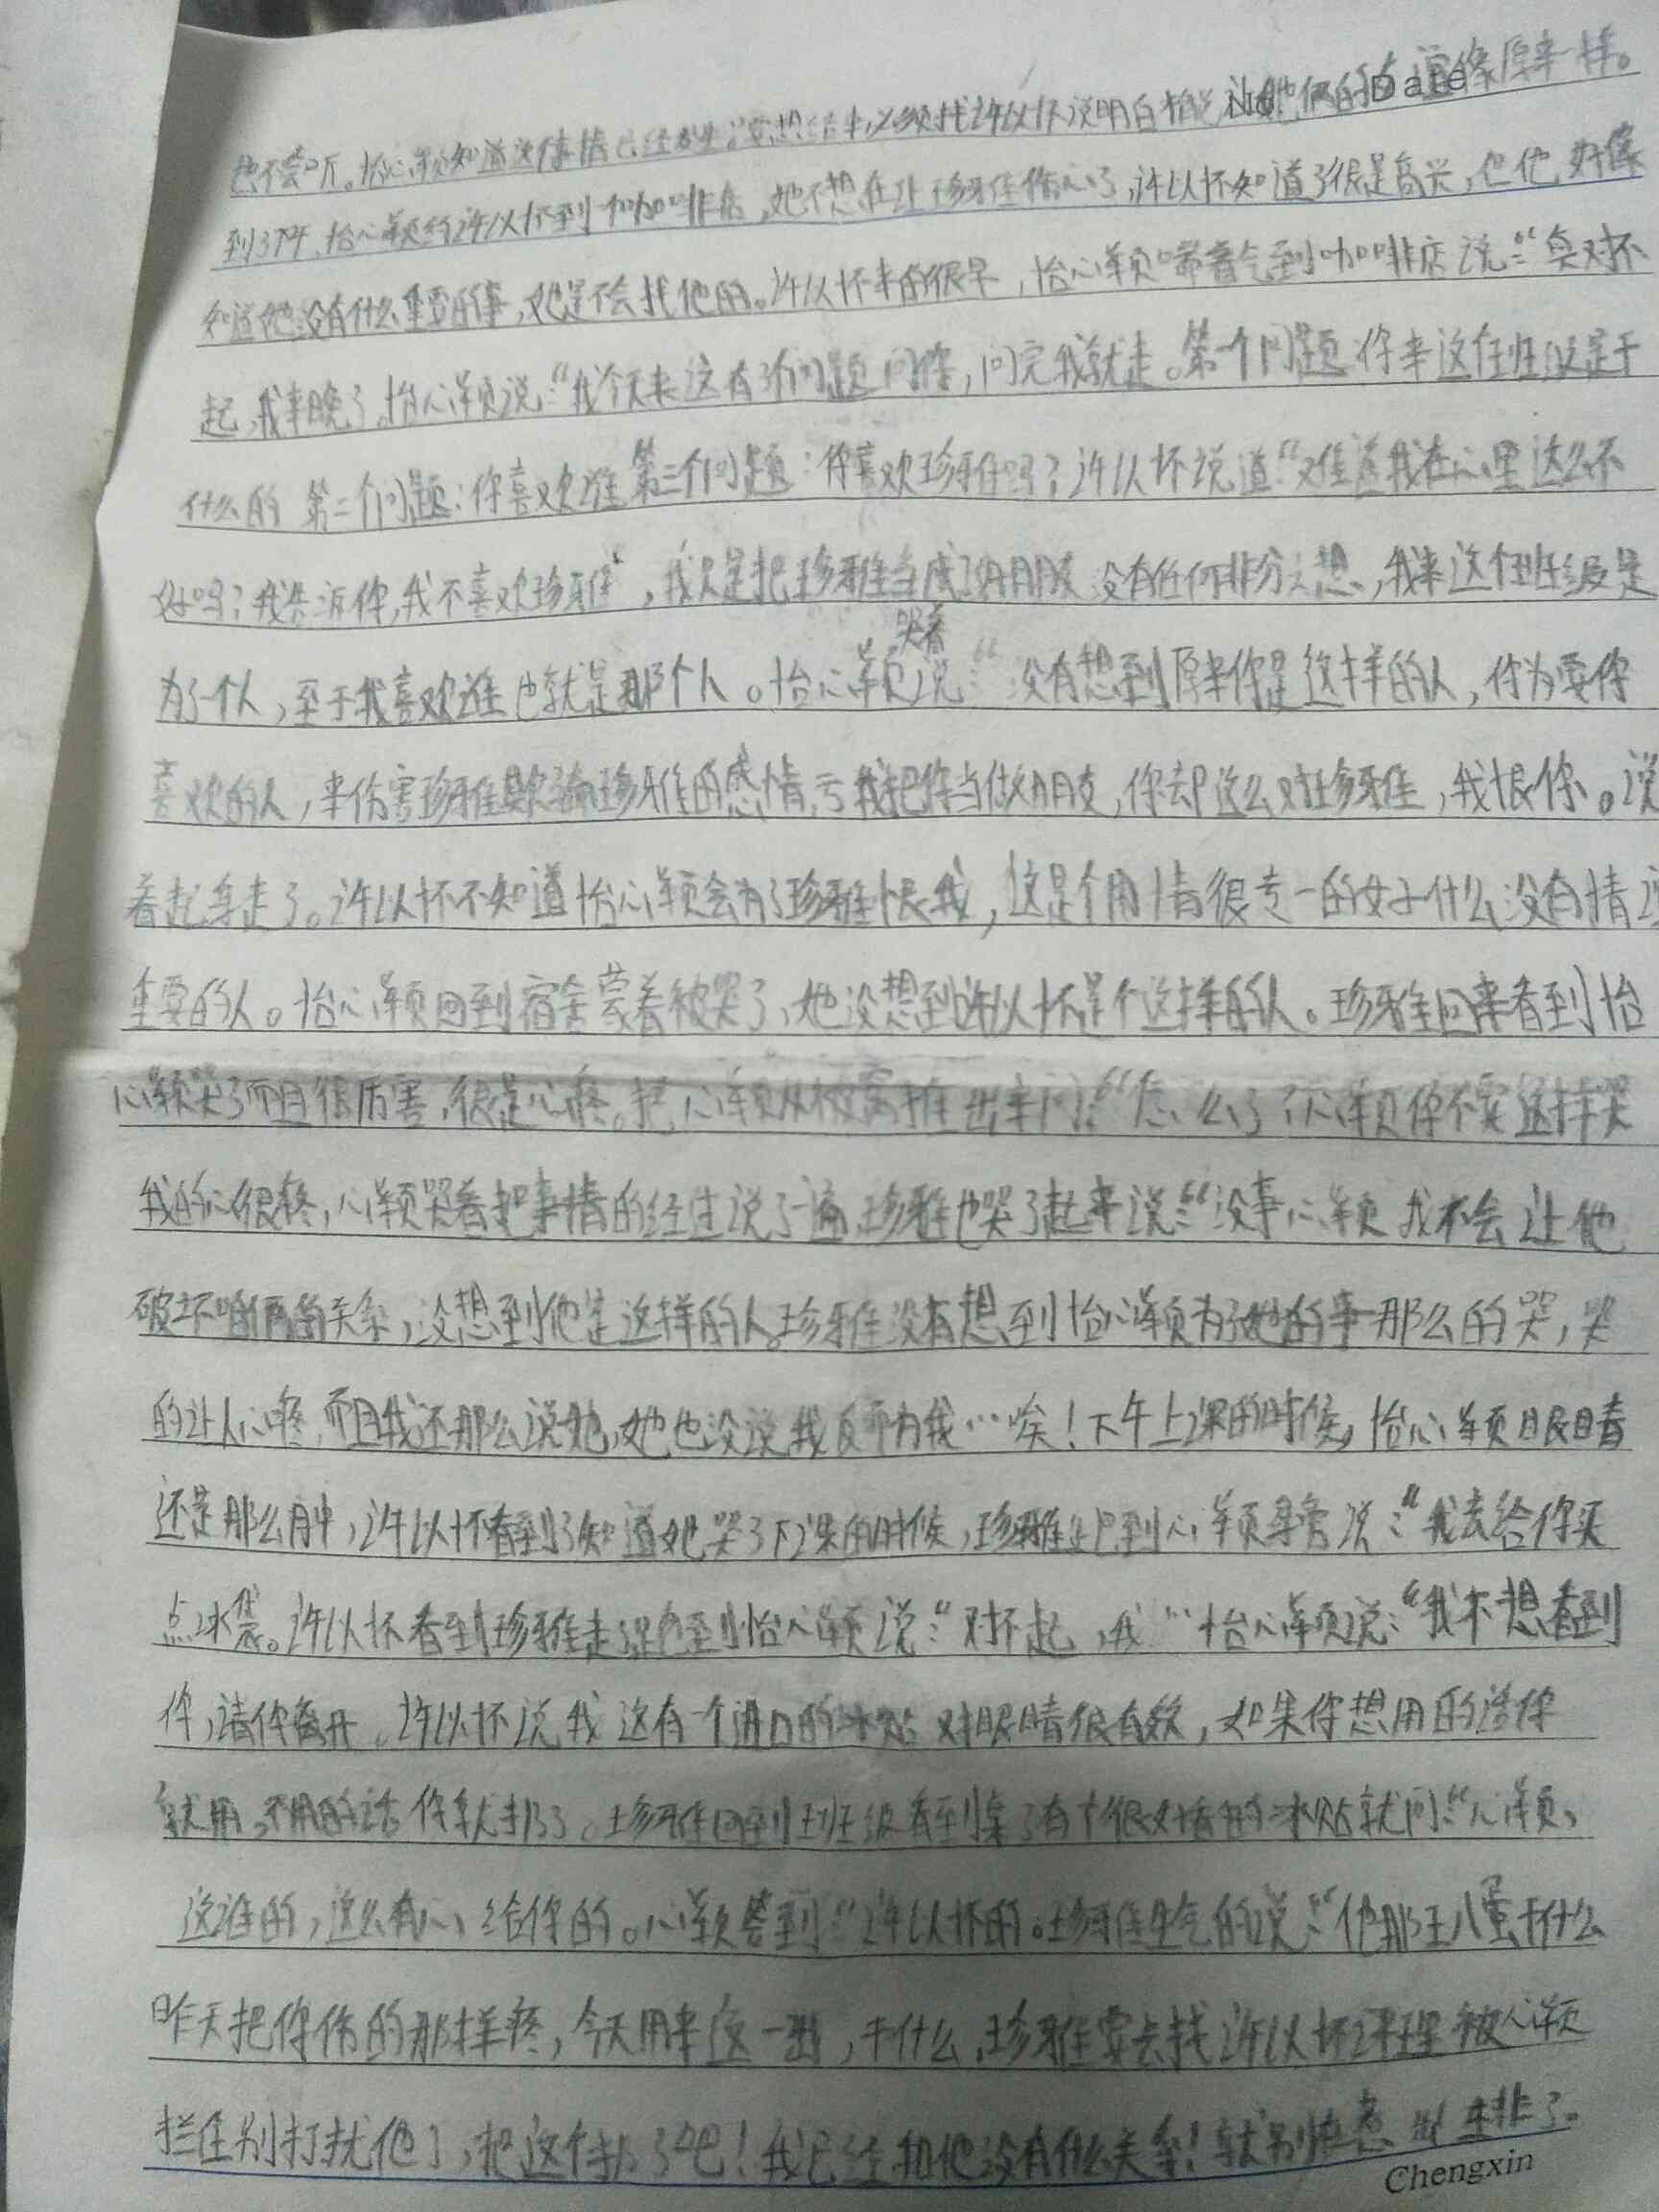 No. Date
也不会听。怡心颖知道这件事情已经发生了要想结束,必须找许以怀说明白 让她俩的 像原来一样。
到了下午,怡心颖约许以怀到一加咖啡店,她不想在让珍雅伤心了,许以怀知道了很是高兴,但他好像
知道她没有什么重要的事,她是不会找他的。许以怀来的很早,怡心颖喘着气到咖啡店说:“真对不
起,我来晚了。怡心颖说:“我今天来这有3个问题问你,问完我就走。第一个问题:你来这任班级是干
什么的 第二个问题:你喜欢谁 第三个问题:你喜欢珍雅吗?许以怀说道“难道我在心里这么不
好吗?我告诉你,我不喜欢珍雅”,我只是把珍雅当成了好朋友没有任何非分之想,我来这个班级是
为了一个人,至于我喜欢谁也就是那个人。怡心颖哭着说:“没有想到原来你是这样的人,你为要你
喜欢的人,来伤害珍雅欺骗珍雅的感情,亏我把你当做朋友,你却这么对珍雅,我恨你。说
着起身走了。许以怀不知道怡心颖会为了珍雅恨我,这是个用情很专一的女子什么没有情
重要的人。怡心颖回到宿舍蒙着被哭了,她没想到许以怀是个这样的人。珍雅回来看到怡
心颖哭了而且很厉害,很是心疼。把心颖从被窝推出来问:“怎么了?心颖你不要这样哭
我的心很疼,心颖哭着把事情的经过说了一遍,珍雅也哭了起来说:“没事心颖 我不会让他
破坏咱俩的关系,没想到他是这样的人。珍雅没有想到怡心颖为了她的事那么的哭,哭
的让人心疼,而且我还那么说她,她也没说我反而为我…唉!下午上课的时候,怡心颖眼睛
还是那么肿,许以怀看到了知道她哭了下课的时候,珍雅跑到心颖身旁说:“我去给你买
点冰袋。许以怀看到珍雅走了跑到怡心颖说:“对不起,我…怡心颖说:“我不想看到
你,请你离开。许以怀说我这有一个进口的冰贴对眼睛很有效,如果你想用的话你
就用,不用的话你就扔了。珍雅回到班级看到桌子有个很好看的冰贴就问:“心颖,
这谁的,这么有心给你的。心颖答到“许以怀的。珍雅生气的说:“他那王八蛋干什么
昨天把你伤的那样疼,今天用来这一出,干什么,珍雅要去找许以怀评理被心颖
拦住别打扰他了,把这个扔了吧!我已经和他没有什么关系!就别惹出是非了。
Chengxin